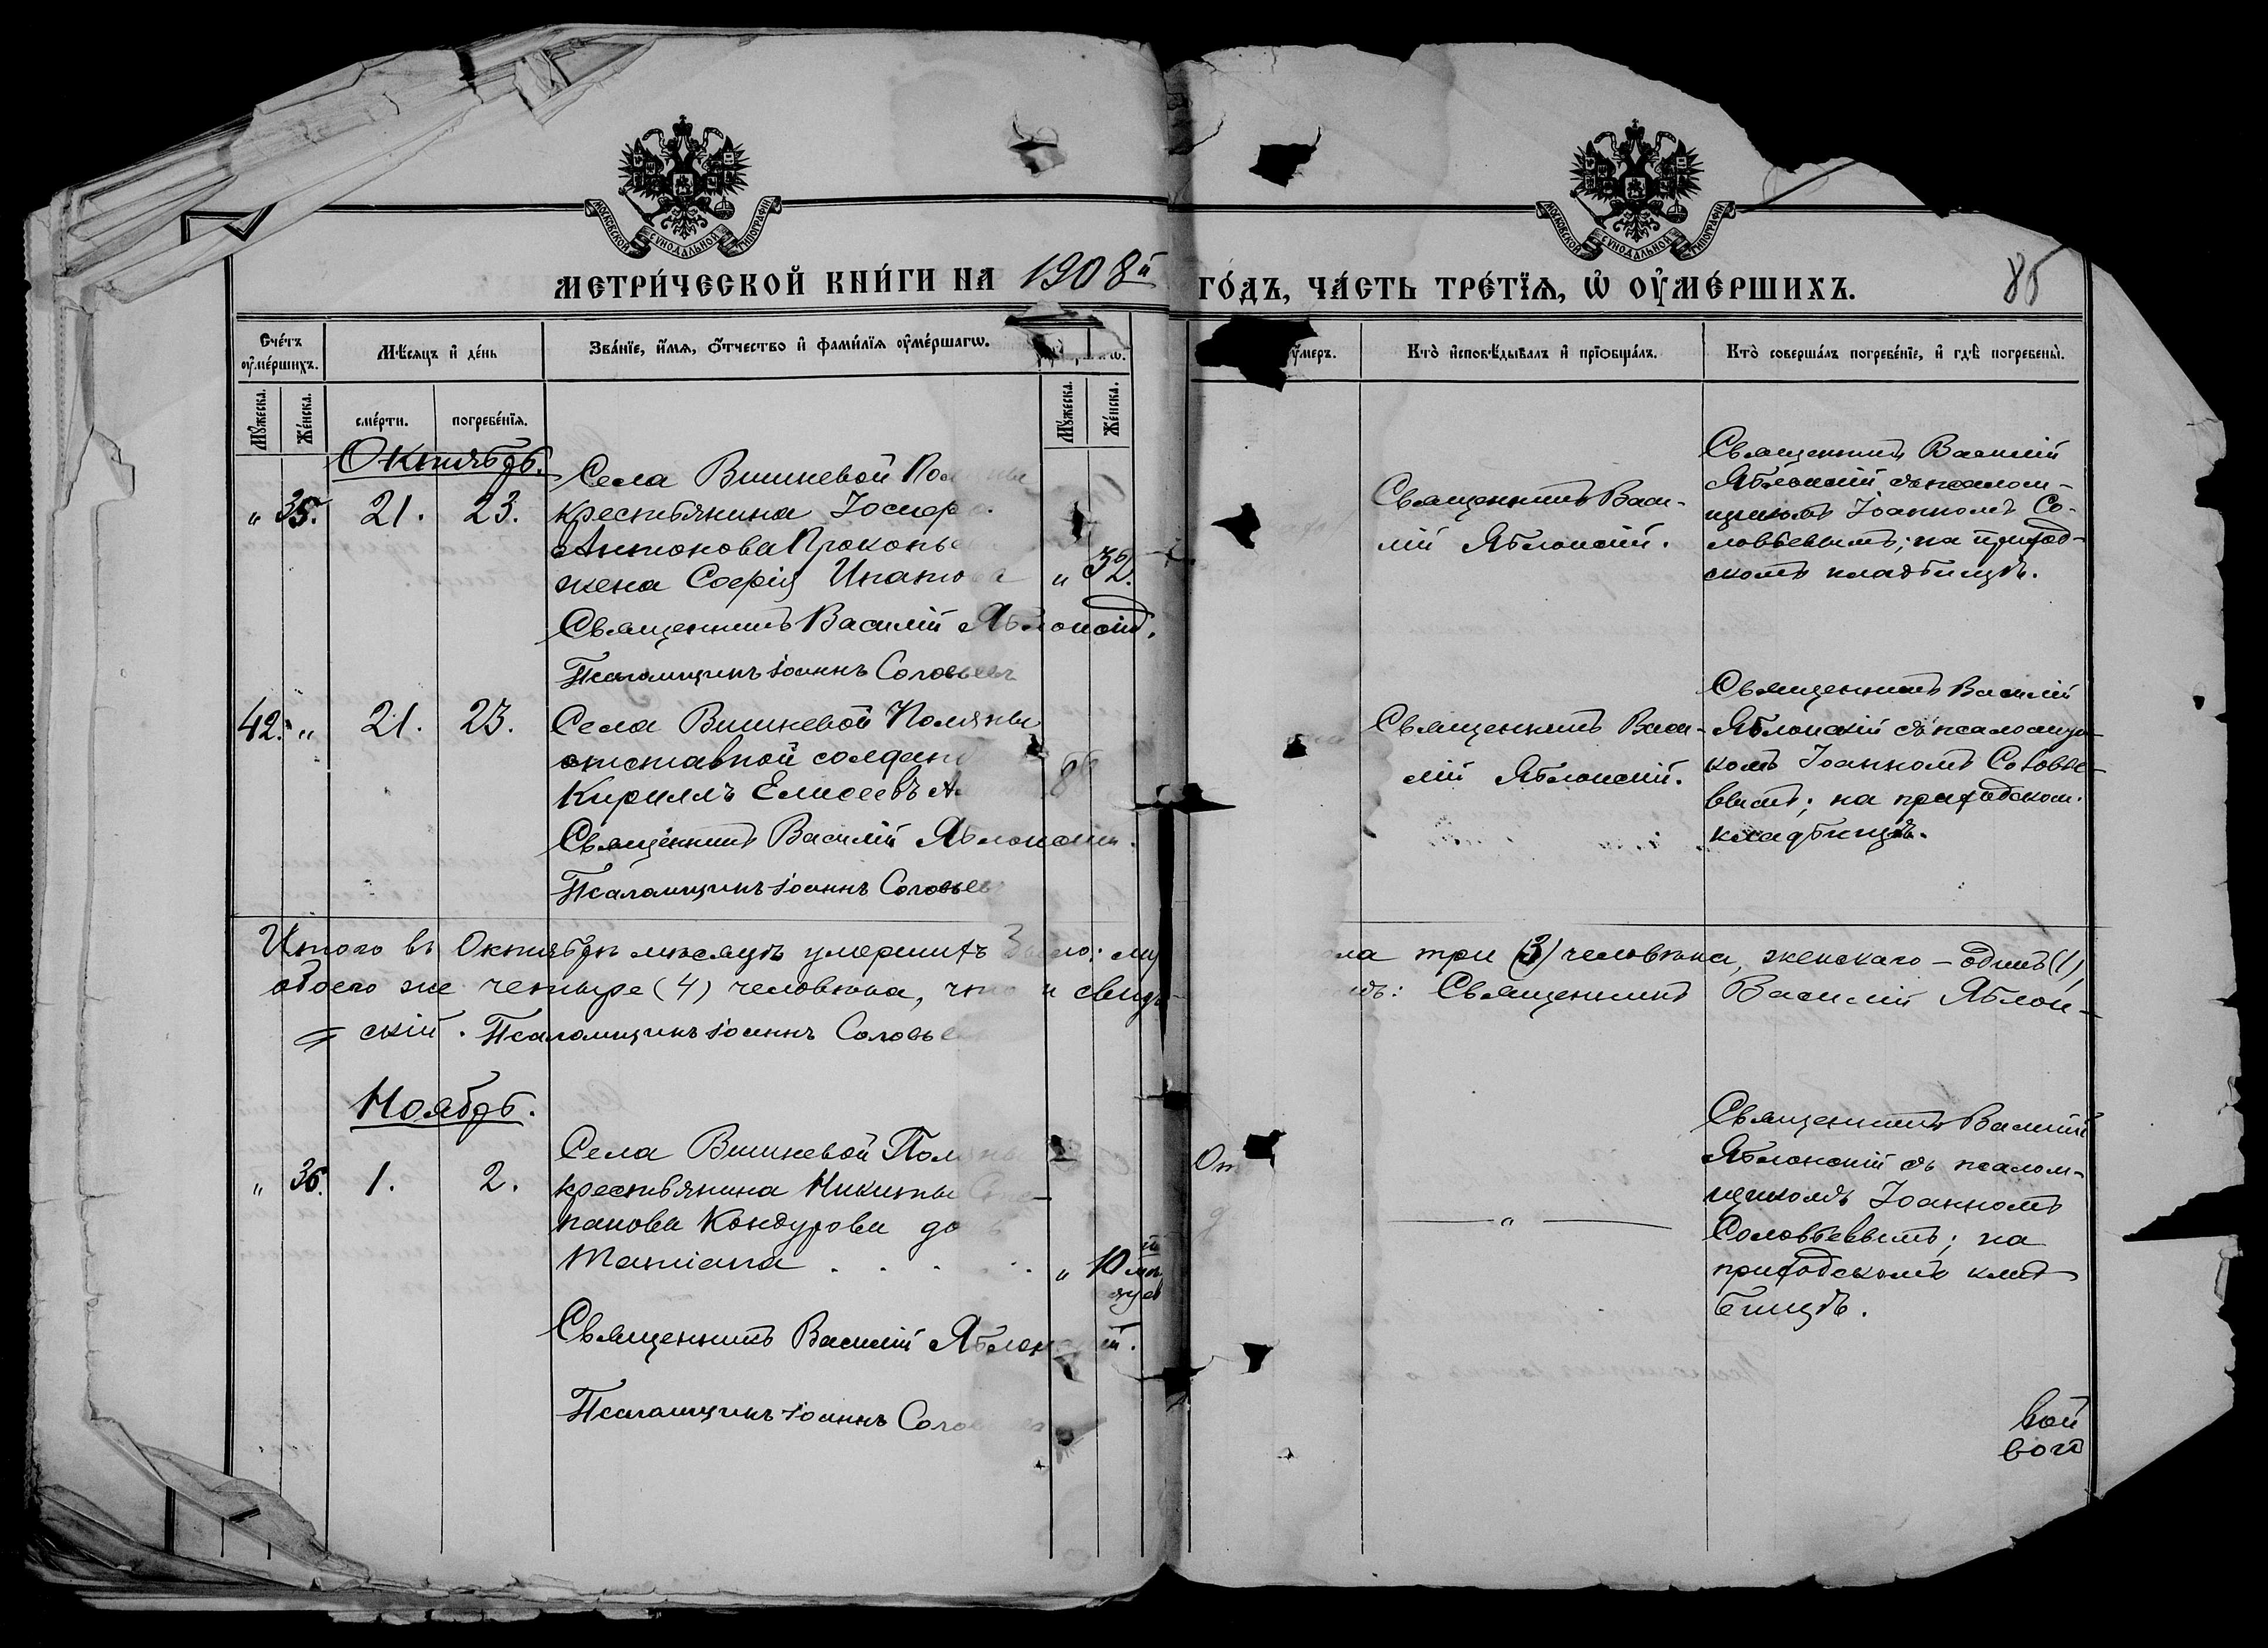 МОСКОВСКОЙ СѴНОДАЛЬНОЙ ТИПОГРАФІИ
МОСКОВСКОЙ СѴНОДАЛЬНОЙ ТИПОГРАФІИ
МЕТРИ́ЧЕСКОЙ КНИ́ГИ НА 1908й ГО́ДЪ, ЧА́СТЬ ТРЕ́ТЇѦ, Ѡ҆ ОУ҆МЕ́РШИХЪ.
85
Сче́тъ оу҆ме́ршихъ.
Мѣ́сяцъ и҆ де́нь
Зва́нїе, и҆́мя, ѻ҆́тчество и҆ фами́лїя оу҆ме́ршагѡ.
оу҆́меръ.
Кто̀ и҆сповѣ́дывалъ и҆ прїѻбща́лъ.
Кто̀ соверша́лъ погребе́нїе, и҆ гдѣ̀ погребены̀.
Мꙋ́жеска.
Же́нска.
сме́рти.
погребе́нїя.
Мꙋ́жеска.
Же́нска.
Октябрь.
" 35. 21. 23.
Села Вишневой
крестьянина Іосифа
Антонова
жена Софія " 32.
Священникъ Василій Яблонскій.
Псаломщикъ Іоаннъ Соловьевъ
Священникъ Васи-
лій Яблонскій.
Священникъ Василій
Яблонскій съ псалом-
щикомъ Іоанномъ Со-
ловьевымъ; на приход-
скомъ кладбищѣ.
42. " 21. 23.
Села Вишневой Поляны
отставной
Кириллъ Елисеевъ
Священникъ Василій Яблонскій.
Псаломщикъ Іоаннъ Соловьевъ
Священникъ Васи-
лій Яблонскій.
Священникъ Василій
Яблонскій съ псаломщи-
комъ Іоанномъ Соловье-
вымъ; на приходском.
кладбищѣ.
Итого въ Октябрѣ мѣсяцѣ умершихъ три (3) человѣка, женскаго – одинъ (1),
обоего же четыре (4) человѣка, и Священникъ Василій Яблон-
скій. Псаломщикъ Іоаннъ
Ноябрь.
" 36. 1. 2.
Села Вишневой
крестьянина Никиты
панова Кондурова
Татіана . . . . " 10 мѣ
сяцев
Священникъ Василій
Псаломщикъ Іоаннъ
От
— " —
Священникъ Василій
Яблонскій съ псалом-
щикомъ Іоанномъ
Соловьевымъ; на
приходскомъ клад-
бищѣ.
вой
вого